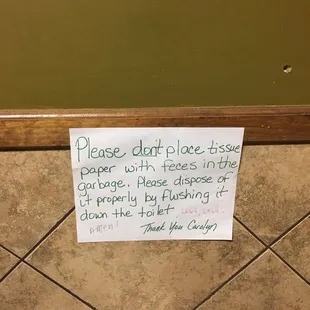 Please don't place tissue
paper with feces in the
garbage. Please dispose of
it properly by flushing it
down the toilet
Thank You Carolyn